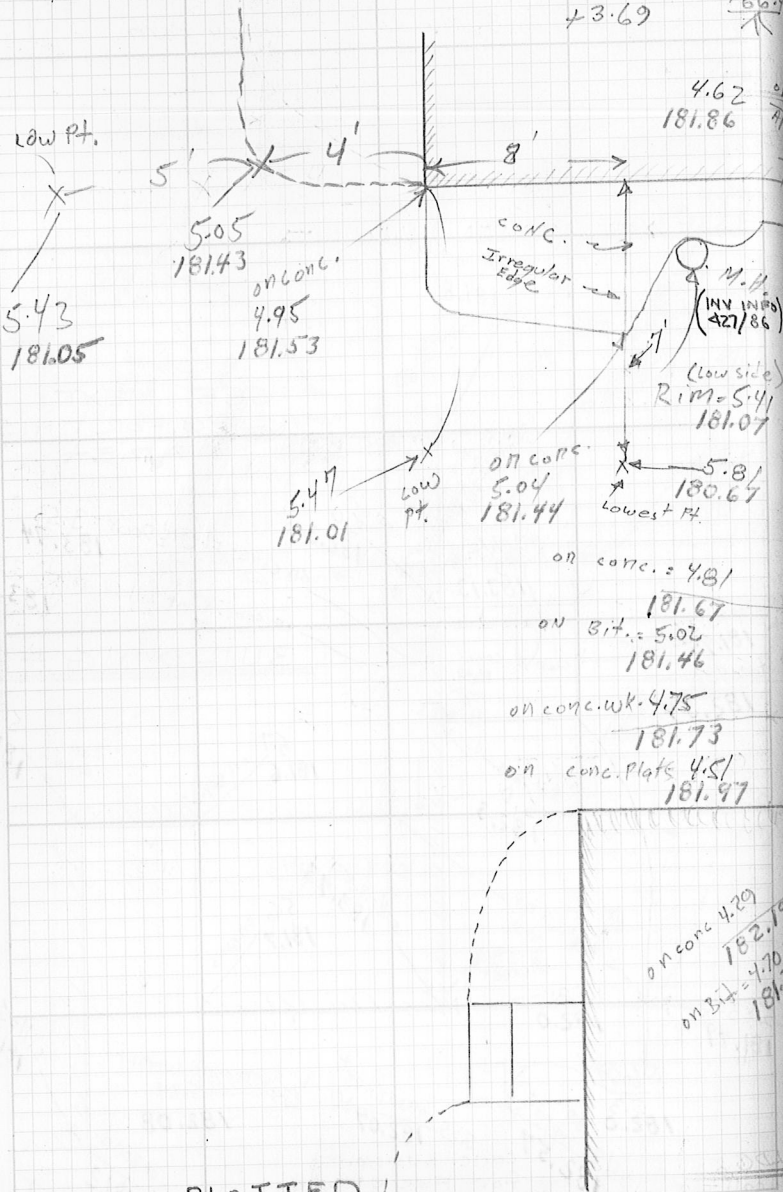 +3.69
4.62
181.86
Low Pt.
5'
4'
8'
5.05
181.43
on conc.
4.95
181.53
conc.
Irregular
Edge
M.H.
(INV INFO
427/86
5.43
181.05
7'
(Low side)
Rim = 5.41
181.07
5.47
181.01
Low
pt.
on conc.
5.04
181.44
5.81
180.67
Lowest Pt.
on conc. = 4.81
181.67
on Bit. = 5.02
181.46
on conc. wk. 4.75
181.73
on conc. Plat = 4.51
181.97
on conc 4.29
182.1
on Bit = 4.70
181.
PLOTTED